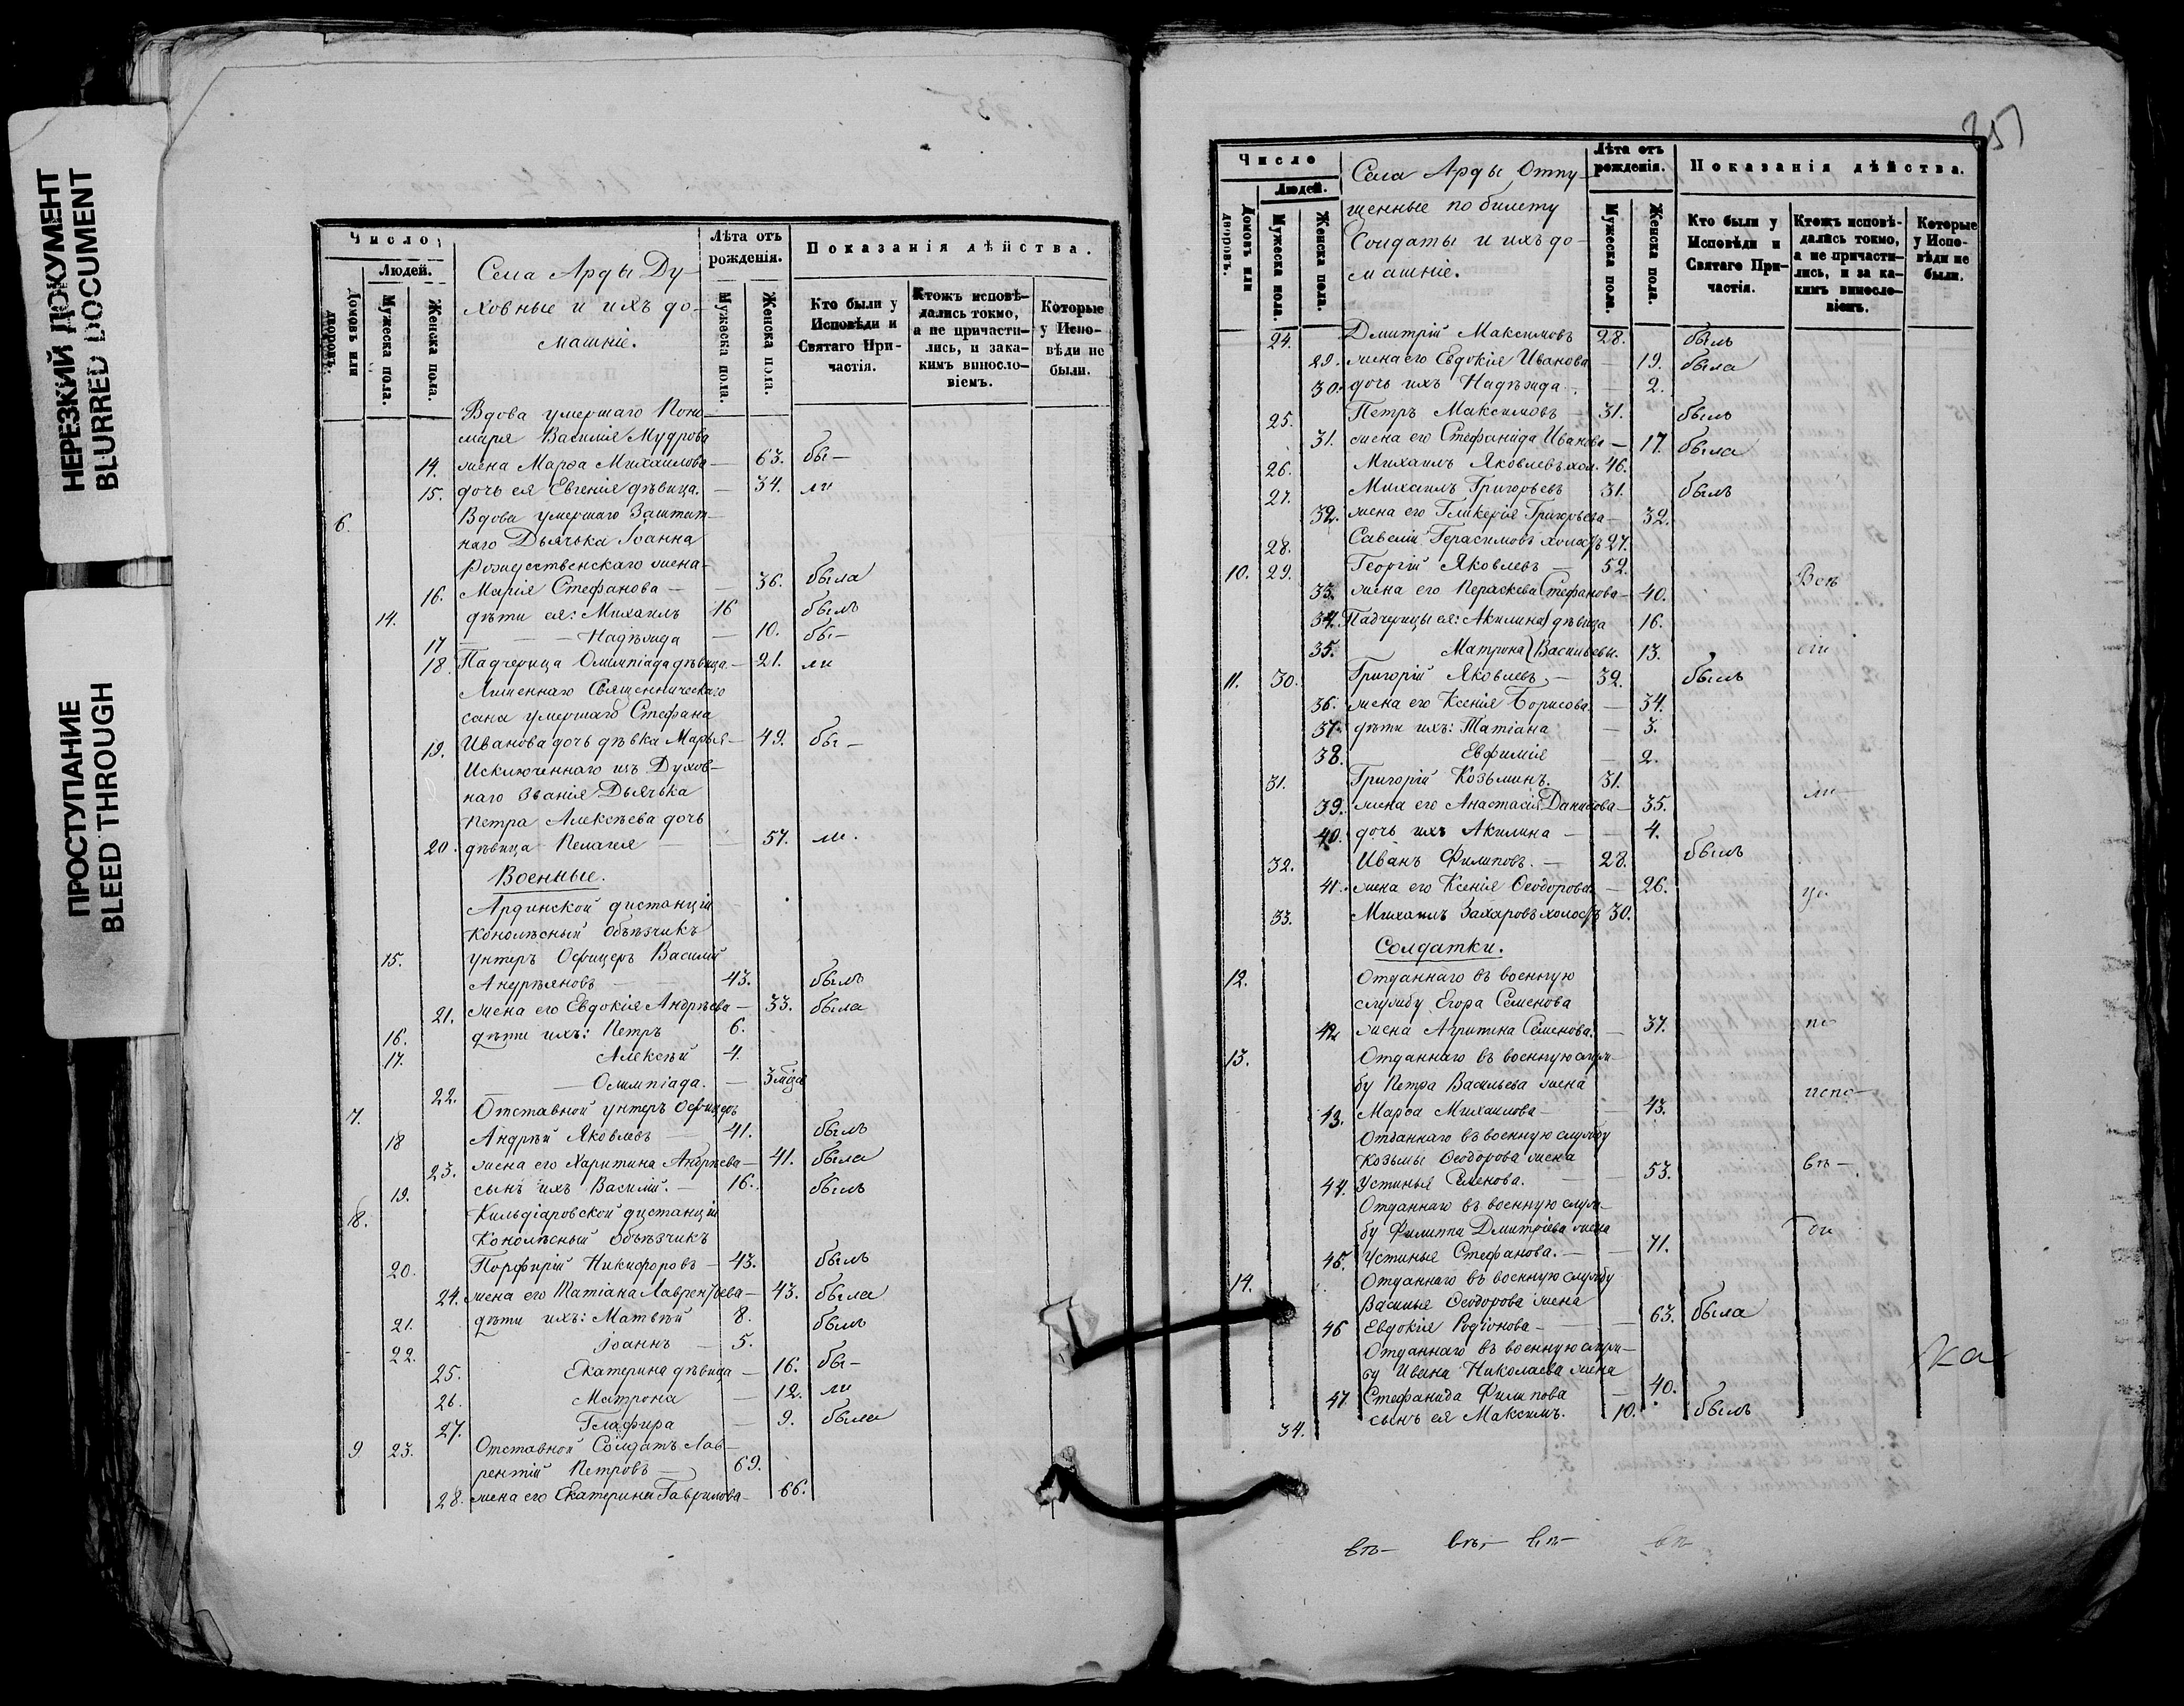 НЕРЕЗКИЙ ДОКУМЕНТ
BLURRED DOCUMENT
ПРОСТУПАНИЕ
BLEED THROUGH
Число
Людей.
Домовъ или дворовъ.
Мужеска пола.
Женска пола.
Села Арды Ду-
ховные и ихъ до-
машніе.
Лѣта отъ рожденія.
Мужеска пола.
Женска пола.
Показанія дѣйства.
Кто были у Исповѣди и Святаго При-частія.
Ктожъ исповѣ-дались токмо, а не причасти-лись, и зака-кимъ винословіемъ.
Которые у Испо-вѣди не были.
Вдова умершаго Поно-
маря Василія Мудрова
14. жена Марѳа Михаилова — 63. бы-
15. дочь ея Евгенія дѣвица. — 34. ли
6. Вдова умершаго Заштат-
наго Дьячька Іоанна
Рождественскаго жена-
16. Марія Стефанова — 36. была
14. дѣти ея: Михаилъ 16 былъ
17 — Надѣжда — 10. бы-
18. Падчерица Олимпіада дѣвица. — 21. ли
Лишеннаго Священническаго
сана умершаго Стефана
19. Иванова дочь дѣвка Марья — 49. бы-
Исключеннаго изъ Духов-
наго Званія Дьячька
Петра Алексѣева дочь
20. дѣвица Пелагея — 57. ли.
Военные.
Ардинской дистанціи
Конолѣсный Объѣзчикъ
15. унтеръ Офицеръ Василій
Андреяновъ — 43. былъ
21. жена его Евдокія Андрѣева — 33. была
16. дѣти ихъ: Петръ 6.
17. Алексѣй 4.
22. — Олимпіада. — 3
7. Отставной унтеръ Офицеръ
18 Андрѣй Яковлевъ — 41. былъ
23. жена его Харитина Андрѣева — 41. была
19. сынъ ихъ Василій. — 16. былъ
8. Кильдіаровской дистанціи
Конолѣсный Объѣзчикъ
20. Порфирій Никифоровъ — 43. былъ
24. жена его Татіана Лаврентьева — 43. была
21. дѣти ихъ: Матвѣй 8. былъ
22. Іоаннъ — 5.
25. Екатерина дѣвица — 16. бы-
26. Матрона — 12. ли
27. Глафира — 9. была
9 23. Отставной Солдатъ Лав-
рентій Петровъ — 69.
28. жена его Екатерина Гаврилова — 66.
Число
Людей.
Домовъ или дворовъ.
Мужеска пола.
Женска пола.
Села Арды Отпу-
щенные по билету
Солдаты и ихъ до-
машніе.
Лѣта отъ рожденія.
Мужеска пола.
Женска пола.
Показанія дѣйства.
Кто были у Исповѣди и Святаго При-частія.
Ктожъ исповѣ-дались токмо, а не причасти-лись, и за ка-кимъ винословіемъ.
Которые у Испо-вѣди не были.
24. Дмитрій Максимовъ 28. былъ
29. жена его Евдокія Иванова — 19. была
30. дочь ихъ Надѣжда. — 2.
25. Петръ Максимовъ — 31. былъ
31. жена его Стефанида Иванова — 17. была
26. Михаилъ Яковлевъ хол. 46.
27. Михаилъ Григорьевъ 31. былъ
32. жена его Гликерія Григорьева — 32.
28. Савелій Герасимовъ холостъ 27.
10. 29. Георгій Яковлевъ — 52.
33. жена его Параскева Стефанова — 40.
34. Падчерицы ея: Акилина дѣвица 16.
35. Матрона Васильевы. 13.
11. 30. Григорій Яковлевъ — 32. былъ
36. жена его Ксенія Борисова. — 34.
37. дѣти ихъ: Татіана — 3.
38. Евфимія — 2.
31. Григорій Козьминъ. 31. ли-
39. жена его Анастасія Данилова — 35.
40. дочь ихъ Акилина — 4.
32. Иванъ Филиповъ. — 28. былъ
41. жена его Ксенія Ѳеодорова. — 26.
33. Михаилъ Захаровъ холостъ 30.
Солдатки.
12. Отданнаго въ военную
службу Егора Семенова
42. жена Агрипина Семенова. — 37. по
13. Отданнаго въ военную служ-
бу Петра Васильева жена
43. Марѳа Михаилова — 43. испо-
Отданнаго въ военную службу
Козьмы Ѳеодорова жена
44. Устинья Семенова. — 53. вѣ-
Отданнаго въ военную служ-
бу Филиппа Дмитріева жена
45. Устинья Стефанова. — 71.
14. Отданнаго въ военную службу
Василья Ѳеодорова жена
46 Евдокія Родіонова — 63. была
Отданнаго въ военную служ-
бу Ивана Николаева жена
47. Стефанида Филипова — 40.
34. сынъ ея Максимъ. 10. былъ
ка
вѣ- вѣ- вѣ- вѣ